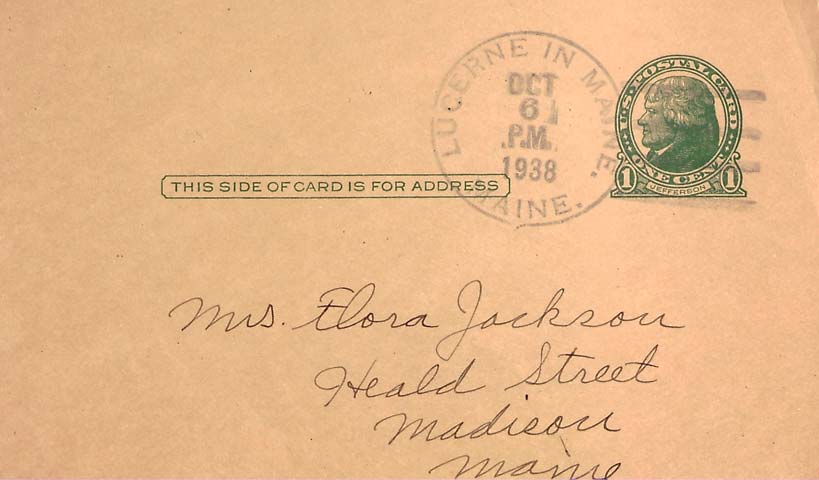 LUCERNE IN MAINE.
MAINE.
OCT
6
P.M.
1938
U.S. POSTAL CARD
ONE CENT
1 JEFFERSON 1
THIS SIDE OF CARD IS FOR ADDRESS
Mrs. Flora Jackson
Heald Street
Madison
Maine